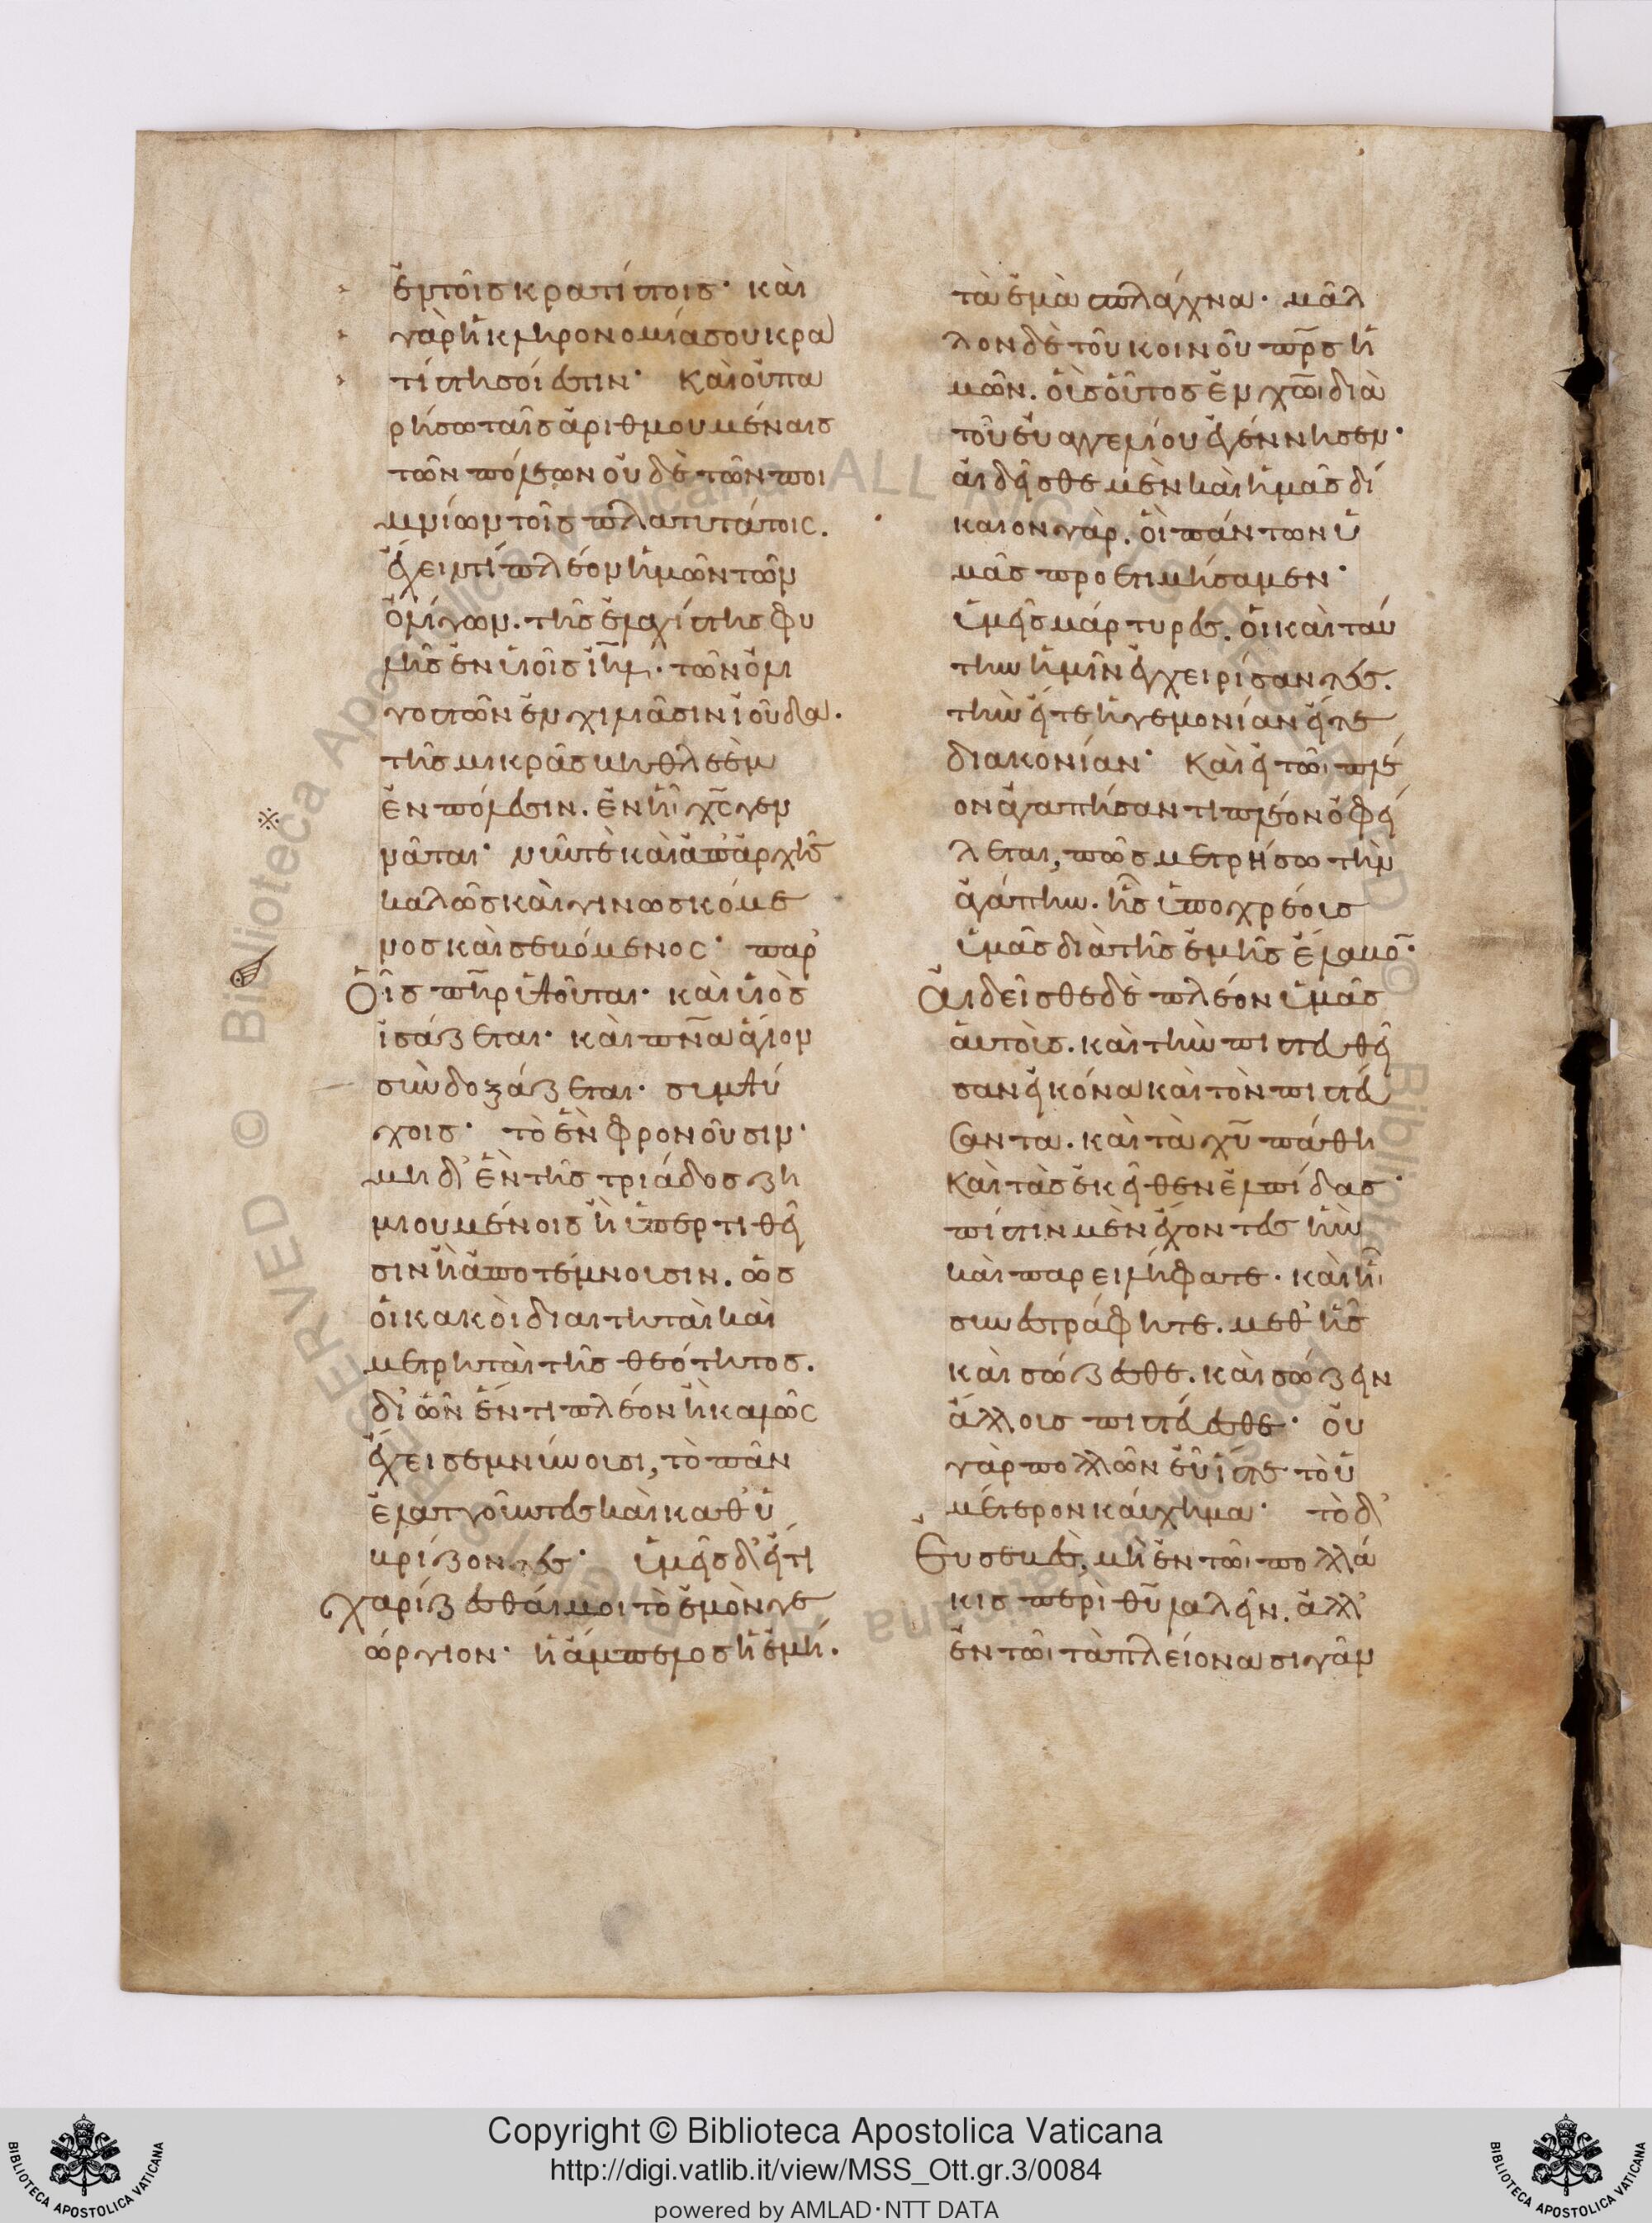 ἐν τοῖς κρατίστοις· καὶ
γὰρ ἡ κληρονομία σου κρα
τίστη σοί ἐστιν· Καὶ οὐ πα
ρήσω ταῖς ἀριθμουμέναις
τῶν πόλεων οὐδὲ τῶν ποι
μνίων τοῖς πλατυτάτοις.
ἔχειν τί πλέον ἡμῶν τῶν
ὀλίγων. τῆς ἐλαχίστης φυ
λῆς ἐν υἱοῖς ιηλ. τῶν ὀλι
γοστῶν ἐν χιλιάσιν ἰούδα.
τῆς μικρᾶς βηθλεὲμ
ἐν πόλεσιν. ἐν ἧι χς γεν
νᾶται· νῦν τὲ καὶ ἀπ' ἀρχῆς
καλῶς καὶ γινωσκόμε
νος καὶ σεβόμενος· παρ'
Οἷς πηρ ὑψοῦται· καὶ υἱὸς
ἰσάζεται· καὶ πνα ἅγιον
συνδοξάζεται· συμψύ
χοις· τὸ ἓν φρονοῦσιν·
μηδ' ἓν τῆς τριάδος ζη
μιουμένοις ἢ ὑπερτιθεῖ
σιν ἢ ἀποτέμνουσιν. ὡς
οἱ κακοὶ διαιτηταὶ καὶ
μετρηταὶ τῆς θεότητος.
δι' ὧν ἕν τι πλέον ἢ καλῶς
ἔχει σεμνύνουσι, τὸ πᾶν
ἐλαττοῦντες καὶ καθυ
βρίζοντες· ὑμεῖς δ' εἴ τι
χαρίζεσθαί μοι τὸ ἐμὸν γε
ώργιον· ἡ ἄμπελος ἡ ἐμή.
τὰ ἐμὰ σπλάγχνα· μᾶλ
λον δὲ τοῦ κοινοῦ πρς ἡ
μῶν. ὃς ὑμᾶς ἐν χωι διὰ
τοῦ εὐαγγελίου ἐγέννησεν·
αἰδεῖσθε μὲν καὶ ἡμᾶς δί
καιον γὰρ. οἳ πάντων ὑ
μᾶς προετιμήσαμεν·
ὑμεῖς μάρτυρες. οἳ καὶ ταύ
την ἡμῖν ἐγχειρίσαντες.
τὴν εἴτε ἡγεμονίαν εἴτε
διακονίαν· Καὶ εἰ τῶι πλέ
ον ἀγαπήσαντι πλέον ὀφεί
λεται, πῶς μετρήσω τὴν
ἀγάπην. ἧς ὑποχρέοις
ὑμᾶς διὰ τῆς ἐμῆς ἔλαβον·
Αἰδεῖσθε δὲ πλέον ὑμᾶς
αὐτοὺς. καὶ τὴν πιστευθεῖ
σαν εἰκόνα καὶ τὸν πιστεύ
σαντα. καὶ τὰ χυ πάθη
καὶ τὰς ἐκεῖθεν ἐλπίδας·
πίστιν μὲν ἔχοντες ἣν
καὶ παρειλήφατε. καὶ ἧι
συνετράφητε. μεθ' ἧς
καὶ σώζεσθε. καὶ σώζειν
ἄλλους πιστεύεσθε· οὐ
γὰρ πολλῶν εὖ ἴστε τὸ ὑ
μέτερον καύχημα· τὸ δ'
Εὐσεβὲς, μὴ ἐν τῶι πολλά
κις περὶ θυ λαλεῖν. ἀλλ'
ἐν τῶι τὰ πλείονα σιγᾶν
Copyright © Biblioteca Apostolica Vaticana
http://digi.vatlib.it/view/MSS_Ott.gr.3/0084
powered by AMLAD·NTT DATA
BIBLIOTECA APOSTOLICA VATICANA
BIBLIOTECA APOSTOLICA VATICANA